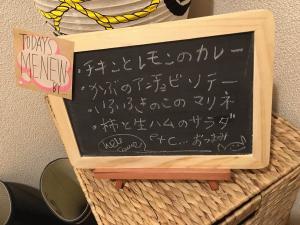 TODAYS
MENEW
BY
・チキンとレモンのカレー
・かぶのアンチョビソテー
・いろいろきのこのマリネ
・柿と生ハムのサラダ
etc... おつまみ